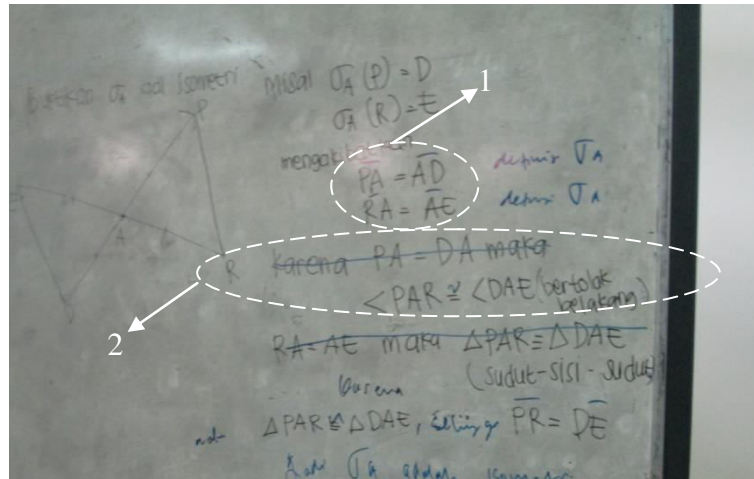 buktikan σA adl Isometri
misal σA (P) = D
σA (R) = E
1
P
PA = AD definisi σA
RA = AE definisi σA
A
R
karena PA = DA maka
<PAR ≅ <DAE (bertolak
belakang)
2
RA = AE maka △PAR ≅ △DAE
(sudut-sisi-sudut)
karena
△PAR ≅ △DAE, sehingga PR = DE
σA adalah